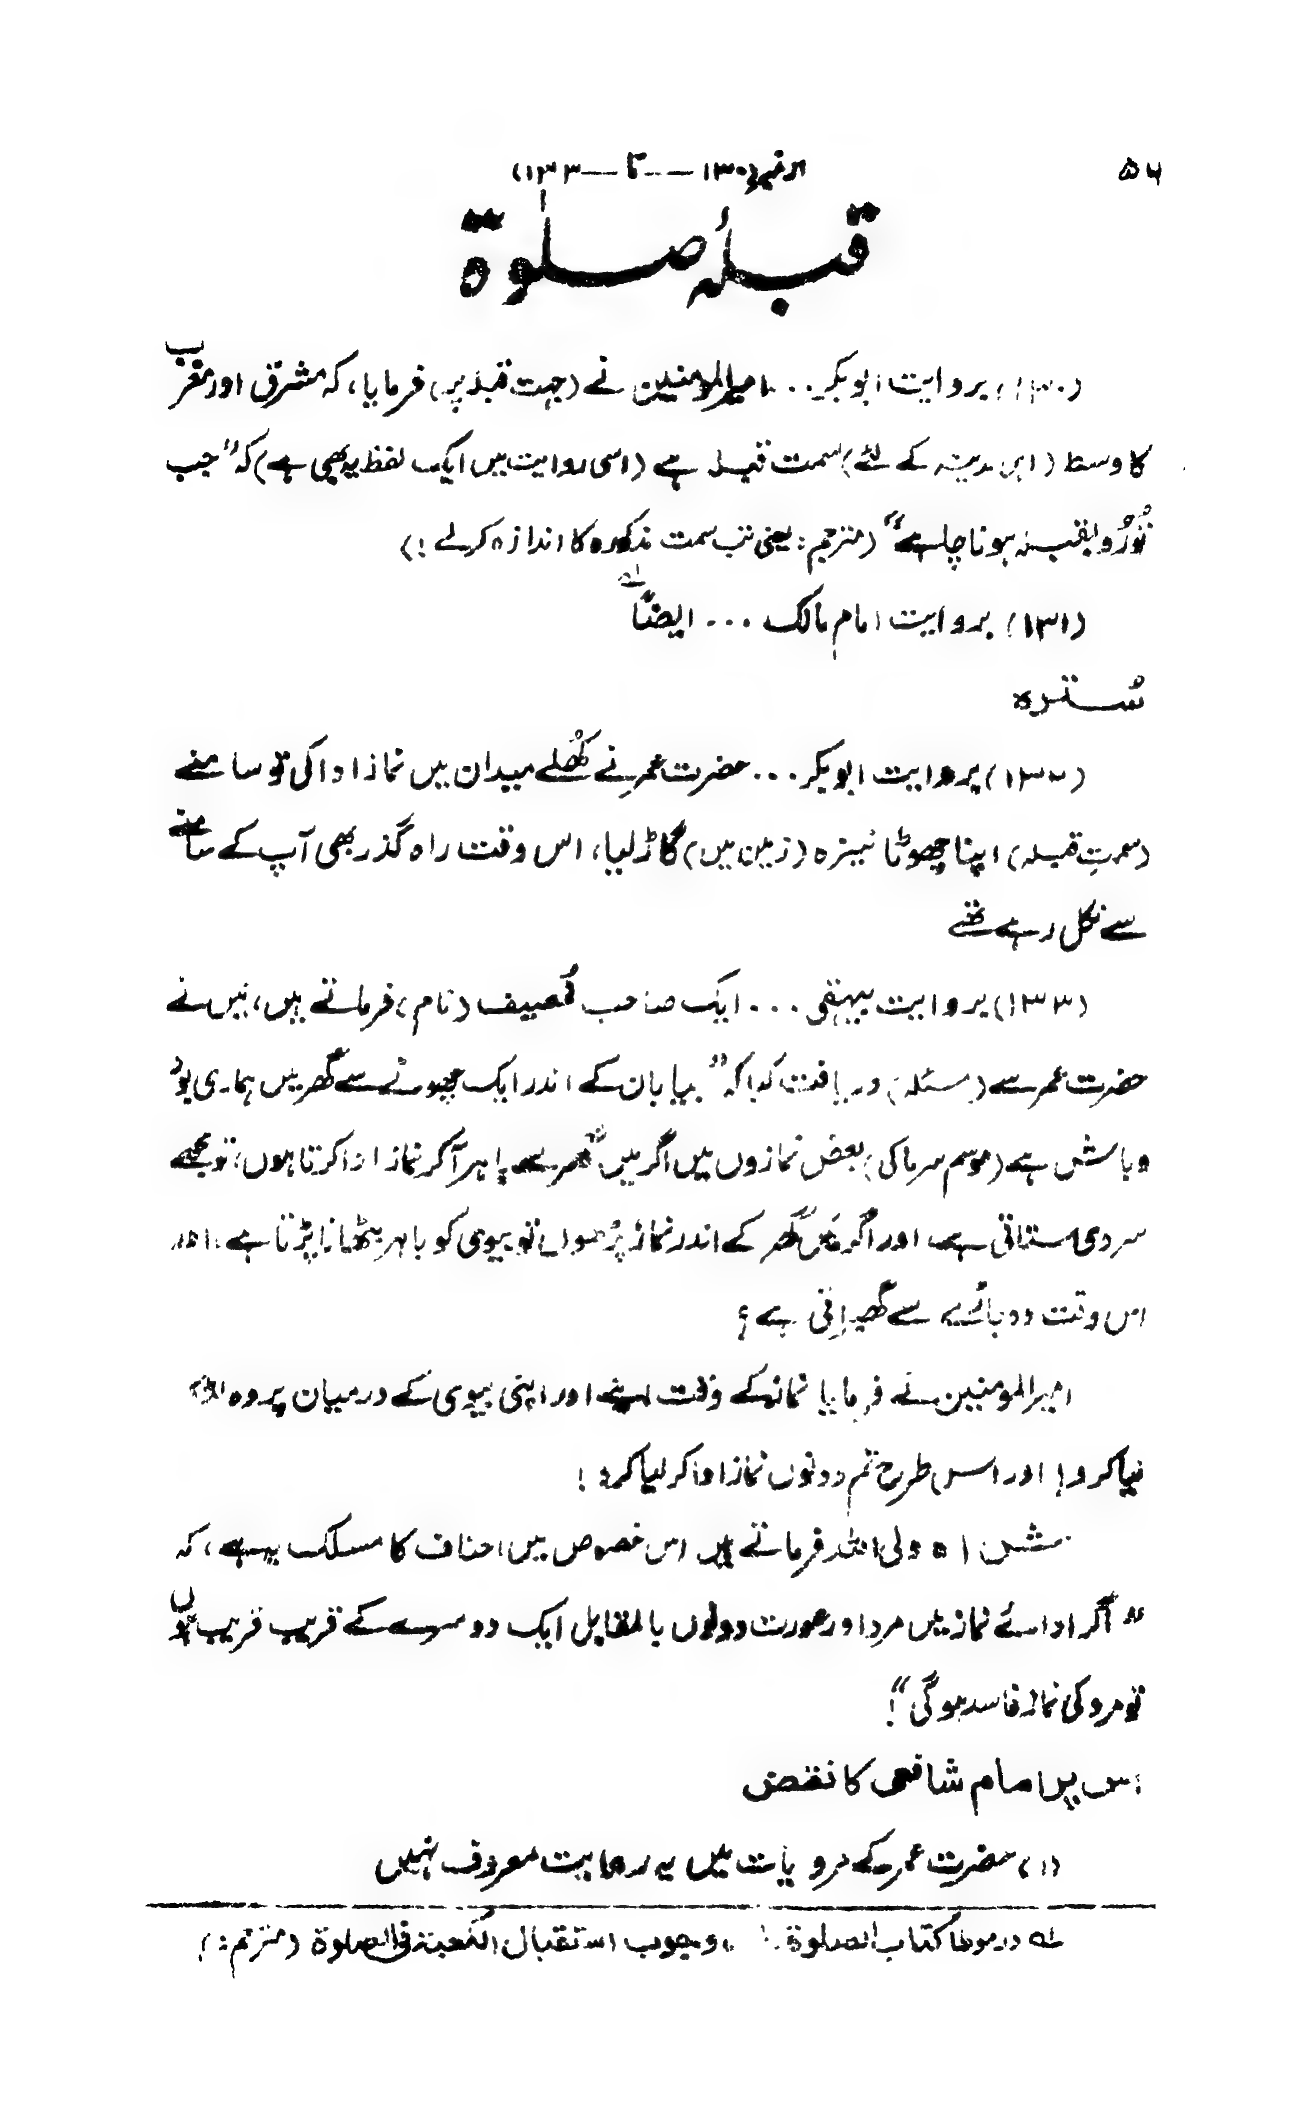 ۵۶
از نمبر (۱۳۰ — تا — ۱۳۳)
قبلۂ صلوٰة
(۱۳۰) بروایت ابوبکر ... امیرالمومنین نے (جہت قبلہ پر) فرمایا، کہ مشرق اور مغرب
کا وسط (اہل مدینہ کے لئے) سمت قبلہ ہے (اسی روایت میں ایک لفظ یہ بھی ہے) کہ "جب
تُو رُو بقبلہ ہونا چاہے" (مترجم: یعنی تب سمت مذکورہ کا اندازہ کرلے!)
(۱۳۱) بروایت امام مالک ... ایضاً لہ
سُترہ
(۱۳۲) بروایت ابوبکر ... حضرت عمر نے کُھلے میدان میں نماز ادا کی تو سامنے
(سمتِ قبلہ) اپنا چھوٹا نیزہ (زمین میں) گاڑ لیا، اس وقت راہ گذر بھی آپ کے سامنے
سے نکل رہے تھے
(۱۳۳) بروایت بیہقی ... ایک صاحب (نام) فرماتے ہیں، میں نے
حضرت عمر سے (مسئلہ) دریافت کیا کہ "بیابان کے اندر ایک چھوٹے سے گھر میں ہماری بود
و باش ہے (موسم سرما کی) بعض نمازوں میں اگر میں گھر سے باہر آکر نماز ادا کرتا ہوں، تو مجھے
سردی ستاتی ہے اور اگر میں گھر کے اندر نماز پڑھوں تو بیوی کو باہر بٹھانا پڑتا ہے، اور
اس وقت وہ سے گھبراتی ہے؟
امیرالمومنین نے فرمایا نماز کے وقت اپنے اور اپنی بیوی کے درمیان پردہ
لیا کرو! اور اس طرح تم دونوں نماز ادا کر لیا کرو!
ش: شاہ ولی اللہ فرماتے ہیں اس خصوص میں احناف کا مسلک یہ ہے، کہ
"اگر ادائے نماز میں مرد اور عورت دونوں بالمقابل ایک دوسرے کے قریب قریب ہوں
تو مرد کی نماز فاسد ہوگی"!
اس پر امام شافعی کا نقض
(۱) حضرت عمر کے مرویات میں یہ روایت معروف نہیں
لہ در موطا کتاب الصلوٰة وجوب استقبال الکعبة فی الصلوٰة (مترجم:)